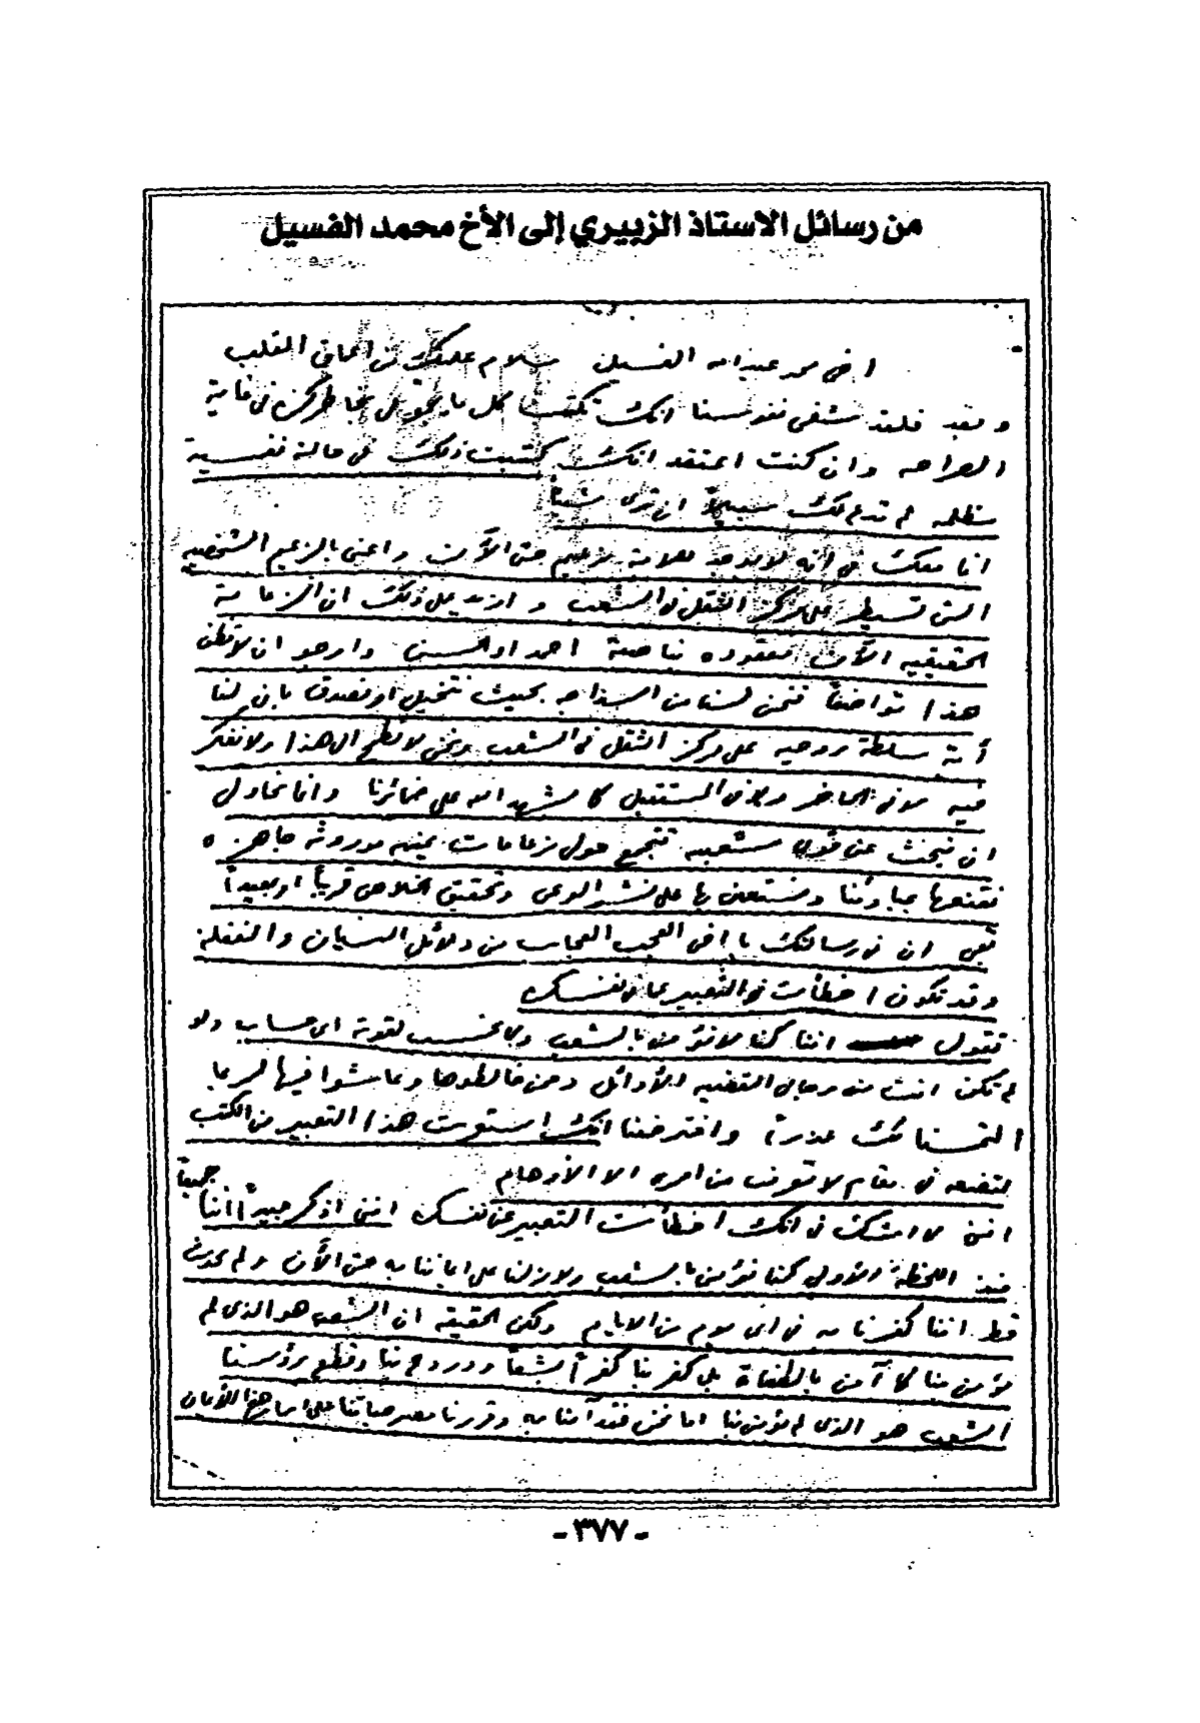 من رسائل الاستاذ الزبيري إلى الأخ محمد الفسيل
اخى محمد عبدالله الفسيل سلام عليك من اعماق القلب
وبعد فلقد شفى نفوسنا انك تكتب كل ما يجول بخاطرك فى غاية
الصراحه وان كنت اعتقد انك كتبت ذلك فى حالة نفسية
مظلمه لم تدع لك سبيلاً ان ترى شيئاً
انا معك فى أنه لا يوجد لدينا زعيم حتى الآن واعنى بالزعيم الشخصيه
التى تسيطر على مركز الثقل فى الشعب وازيد على ذلك ان الزعامة
الحقيقيه الآن معقوده بناصية احمد او الحسن وارجو ان لا تظن
هذا تواضعاً فنحن لسنا من السذاجه بحيث نتخيل او نصدق بان لنا
أية سلطة روحيه على مركز الثقل فى الشعب ونحن لا نطمح الى هذا ولا نفكر
فيه لا فى الحاضر ولا فى المستقبل كما يشهد الله على ضمائرنا وانما نحاول
ان نبحث عن قوى شعبيه تتجمع حول زعامات يمنيه موروثه جاهزه
نقنعها بمبادئنا ونستعين بها على نشر الوعى وتحقيق الخلاص قريباً او بعيداً
ان فى رسالتك يا اخى العجب العجاب من دلائل النسيان والغفله
وقد تكون اخطأت فى التعبير عما فى نفسك
تقول اننا كنا لا نؤمن بالشعب ولا نحسب لقوته اى حساب ولو
لم تكن انت من رجال القضيه الأوائل ومن خالطوها وعاشوا فيها لربما
التمسنا لك عذراً وافترضنا انك استعرت هذا التعبير من الكتب
لتضعه فى مقام لا تعرف من امره الا الأوهام
اننى لا اشك فى انك اخطأت التعبير عن نفسك اننى اذكر جيداً اننا جميعاً
منذ اللحظة الأولى كنا نؤمن بالشعب ولا زلنا على ايماننا به حتى الآن ولم يحدث
قط اننا كفرنا به فى اى يوم من الايام ولكن الحقيقه ان الشعب هو الذى لم
يؤمن بنا كما آمن بالطغاة بل كفر بنا كفراً بشعاً ودروح بنا وقطع رؤوسنا
الشعب هو الذى لم يؤمن بنا اما نحن فقد آمنا به وقررنا مصير حياتنا على اساس هذا الايمان
- ٣٧٧ -